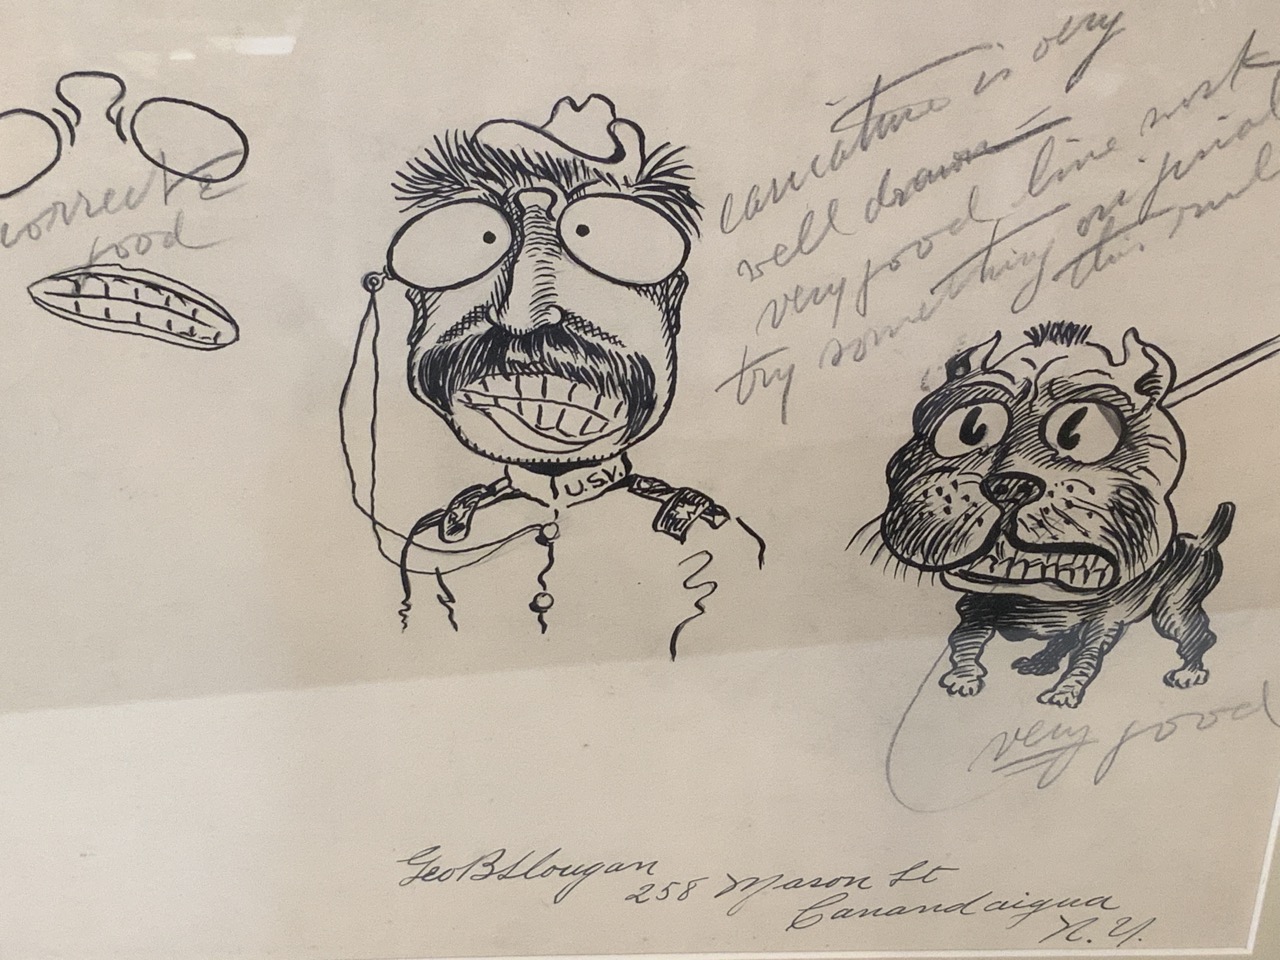 correct
good
caricature is very
well drawn
very good line work
try something original
this
U.S.V.
very good
Geo B Slougan
258 Mason St
Canandaigua
N.Y.